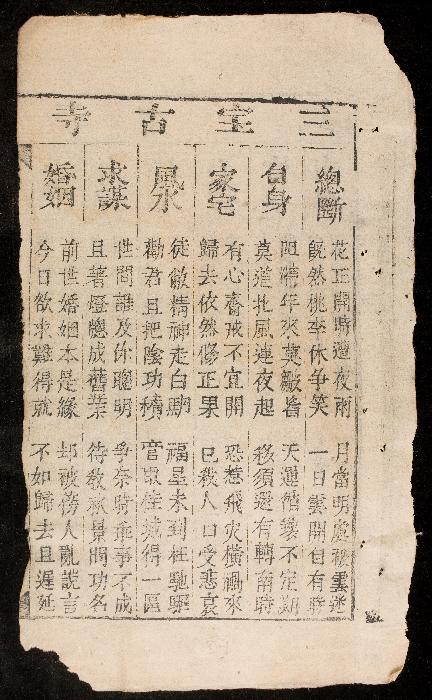 三宝古寺
總斷
花正開時遭夜雨 月當明處被雲迷
既然桃李休争笑 一日雲開自有時
自身
年來莫皺眉 天運循環不定期
莫道北風連夜起 移須還有轉南時
家宅
有心齋戒不宜開 恐惹飛灾橫禍來
歸去依然修正果 已殺人口受悲哀
風水
徒敝精神走白駒 福星未到枉馳驅
勸君且把陰功積 管取佳城得一區
求謀
世間誰及你聰明 爭奈時乖事不成
且著燈牕成舊業 待教秋景問功名
婚姻
前世婚姻本是緣 却被傍人亂説言
今日欲求難得就 不如歸去且遲延